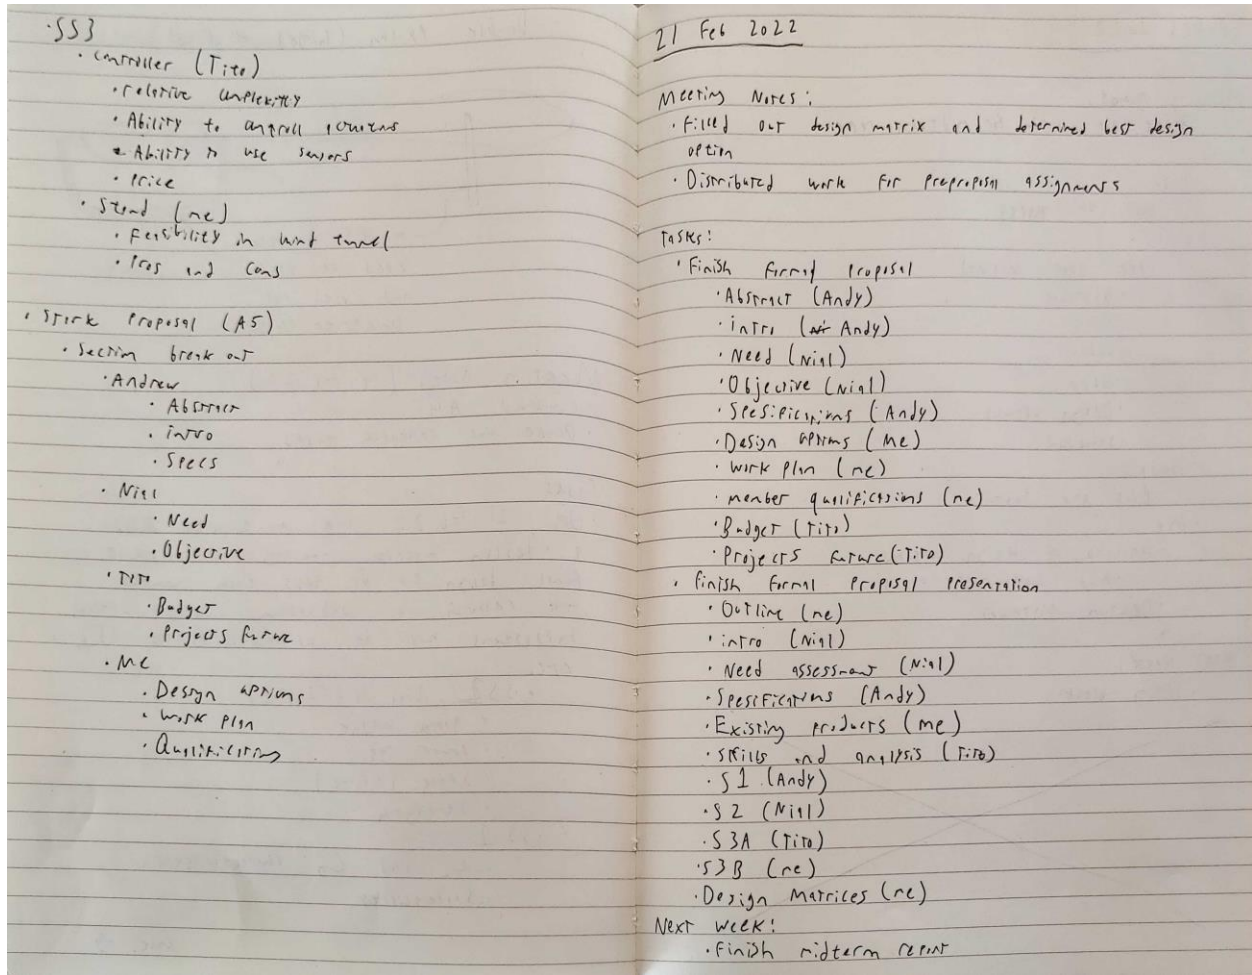 · SS3
· Controller (Tito)
· relative complexity
· Ability to controll
· Ability to use sensors
· Price
· Stand (me)
· Feasibility in wind tunnel
· Pros and Cons
· Start Proposal (A5)
· Section break out
· Andrew
· Abstract
· intro
· Specs
· Nial
· Need
· Objective
· Tito
· Budget
· Projects future
· Me
· Design options
· Work plan
· Qualifications
21 Feb 2022
Meeting Notes:
· Filled out design matrix and determined best design
option
· Distributed work for preproposal assignments
Tasks:
· Finish formal proposal
· Abstract (Andy)
· intro (Andy)
· Need (Nial)
· Objective (Nial)
· Spesifications (Andy)
· Design options (me)
· work plan (me)
· member qualifications (me)
· Budget (Tito)
· Projects future (Tito)
· Finish Formal Proposal Presentation
· Outline (me)
· intro (Nial)
· Need assessment (Nial)
· Spesifications (Andy)
· Existing products (me)
· Skills and analysis (Tito)
· S1 (Andy)
· S2 (Nial)
· S3A (Tito)
· S3B (me)
· Design Matrices (me)
Next week:
· Finish midterm report